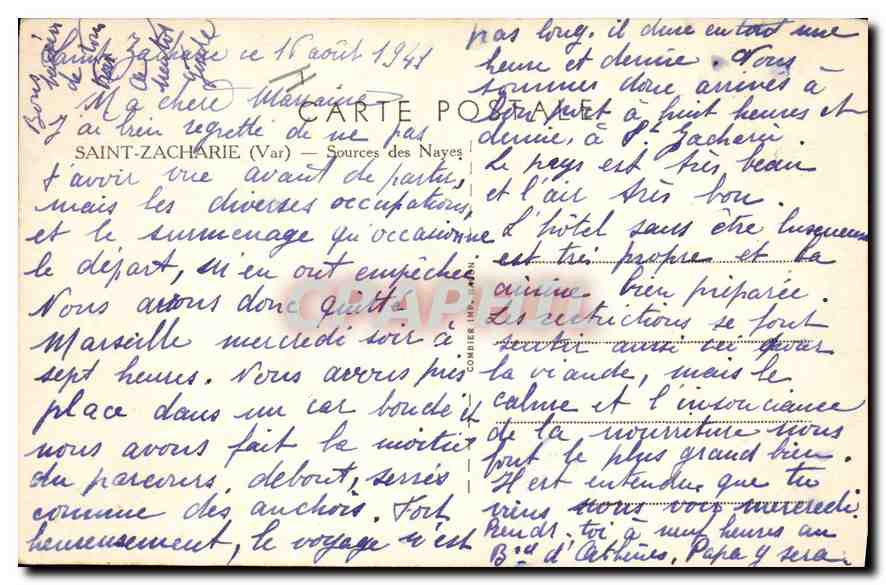 Saint Zacharie ce 16 août 1941
Ma chère Marraine
CARTE POSTALE
J'ai bien regretté de ne pas
SAINT-ZACHARIE (Var) — Sources des Nayes
t'avoir vue avant de partir,
mais les diverses occupations,
et le surmenage qu'occasionne
le départ, m'en ont empêchée
Nous avons donc quitté
Marseille mercredi soir à
sept heures. Nous avons pris
place dans un car bondé et
nous avons fait la moitié
du parcours, debout, serrés
comme des anchois. Fort
heureusement, le voyage n'est
COMBIER IMP. MACON
pas long. il dure en tout une
heure et demie. Nous
sommes donc arrivés à
bon port à huit heures et
demie, à St Zacharie
Le pays est très beau
et l'air très bon.
L'hôtel sans être luxueux
est très propre et la
cuisine bien préparée.
Les restrictions se font
sentir aussi ici pour
la viande, mais le
calme et l'insouciance
de la nourriture nous
font le plus grand bien.
Il est entendu que tu
viens nous voir mercredi.
Rends-toi à neuf heures au
Bd d'Athènes, Papa y sera
Bons
de tous
CPAPHIL